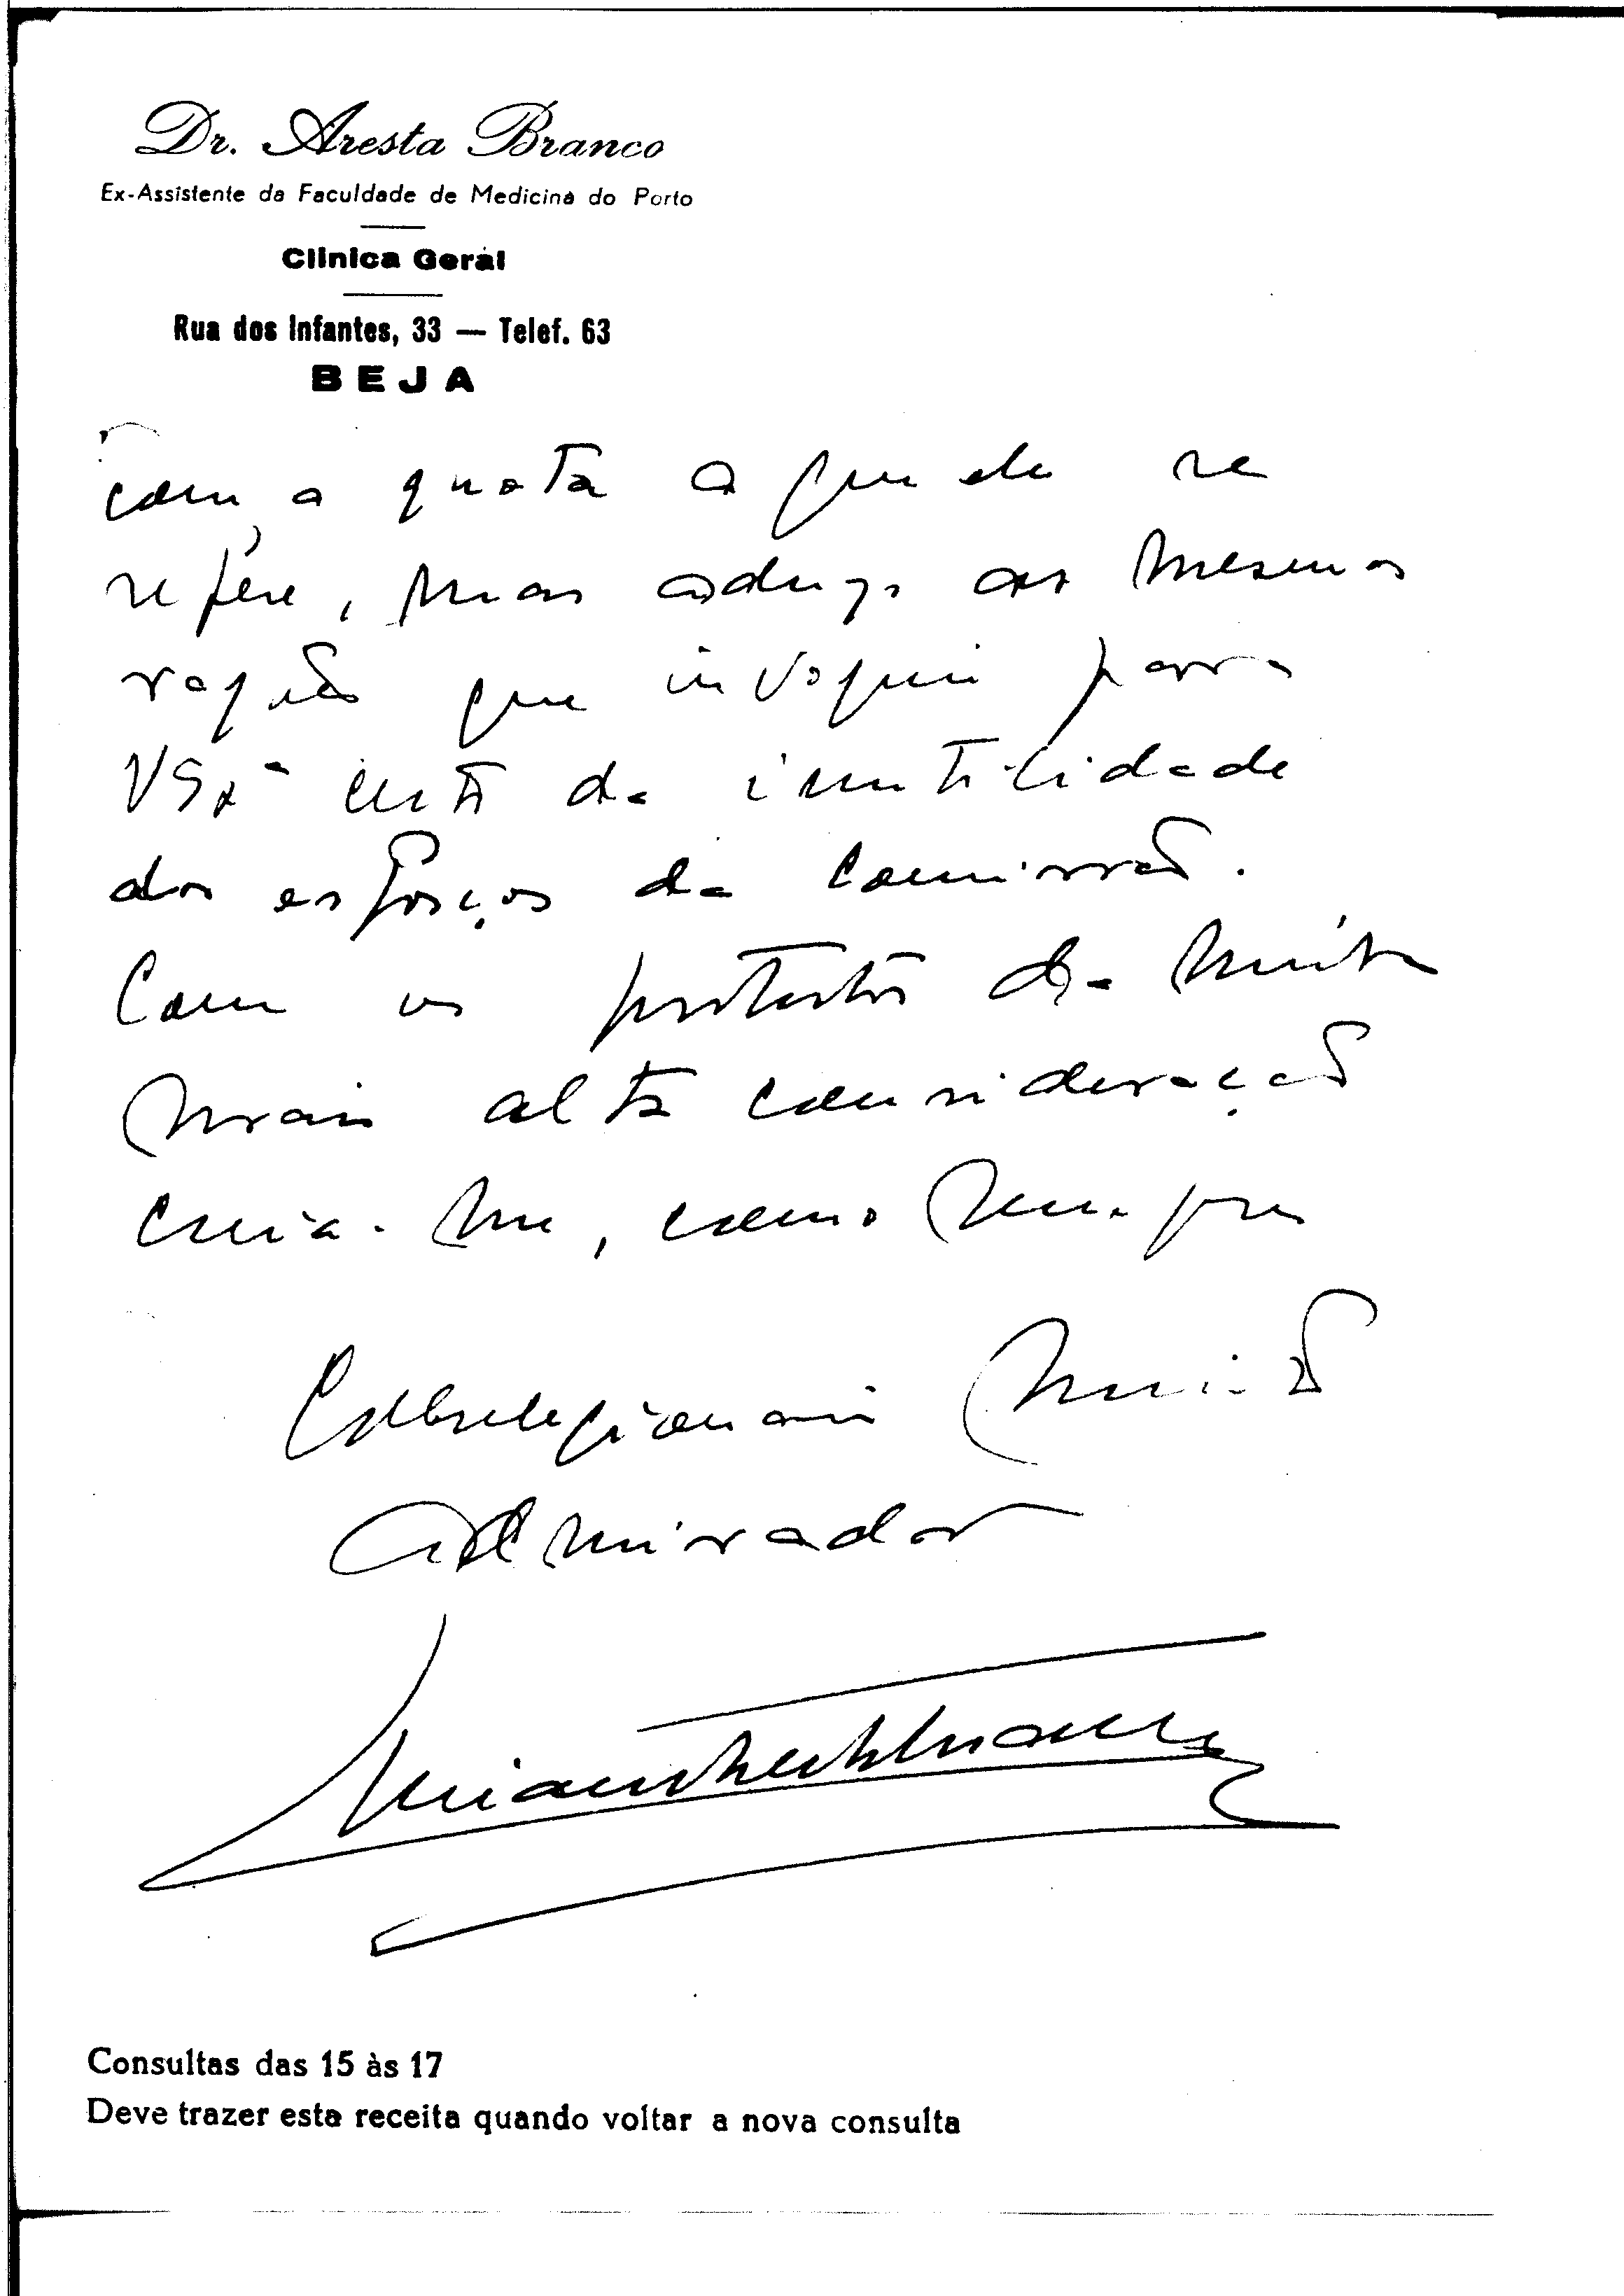 Dr. Aresta Branco
Ex-Assistente da Faculdade de Medicina do Porto
Clinica Geral
Rua dos Infantes, 33 — Telef. 63
BEJA
com a quota a que ele se
refere, mas aduzo as mesmas
razões que invoquei para
VExª certo da inutilidade
dos esforços da comissão.
Com os protestos da minha
mais alta consideração
creia-me, como sempre
Correlegionario muito
admirador
Consultas das 15 às 17
Deve trazer esta receita quando voltar a nova consulta